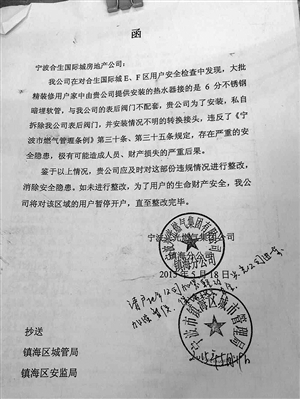 函
宁波合生国际城房地产公司：
我公司在对合生国际城E、F区用户安全检查中发现，大批
精装修用户家中由贵公司提供安装的热水器接的是 6 分不锈钢
暗埋软管，与我公司的表后阀门不配套，贵公司为了安装，私自
拆除我公司表后阀门，并安装情况不明的转换接头，违反了《宁
波市燃气管理条例》第三十条、第三十五条规定，存在严重的安
全隐患，极有可能造成人员、财产损失的严重后果。
鉴于以上情况，贵公司应及时对这部份违规情况进行整改，
消除安全隐患，如未进行整改，为了用户的生命财产安全，我公
司将对该区域的用户暂停开户，直至整改完毕。
宁波 燃气集团有限公司
镇海分公司
2015 年 5 月 18 日
宁波市镇海区城市管理局
抄送
镇海区城管局
镇海区安监局